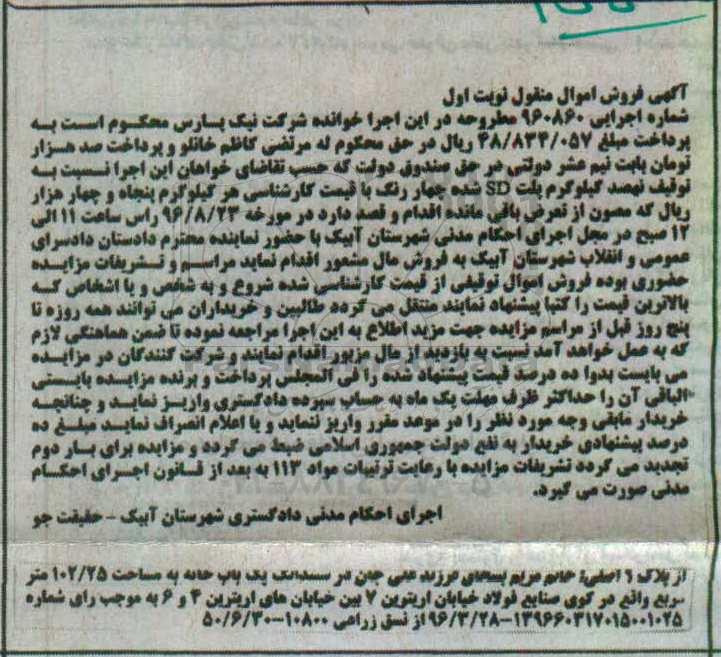 آگهی فروش اموال منقول نوبت اول
شماره اجرایی ۹۶۰۸۶۰ مطروحه در این اجرا خوانده شرکت نیک پارس محکوم است به
پرداخت مبلغ ۴۸/۸۳۴/۰۵۷ ریال در حق محکوم له مرتضی کاظم خانلو و پرداخت صد هزار
تومان بابت نیم عشر دولتی در حق صندوق دولت که حسب تقاضای خواهان این اجرا نسبت به
توقیف نهصد کیلوگرم پلت SD شده چهار رنگ با قیمت کارشناسی هر کیلوگرم پنجاه و چهار هزار
ریال که مصون از تعرض باقی مانده اقدام و قصد دارد در مورخه ۹۶/۸/۲۳ راس ساعت ۱۱ الی
۱۲ صبح در محل اجرای احکام مدنی شهرستان آبیک با حضور نماینده محترم دادستان دادسرای
عمومی و انقلاب شهرستان آبیک به فروش مال مشعور اقدام نماید مراسم و تشریفات مزایده
حضوری بوده فروش اموال توقیفی از قیمت کارشناسی شده شروع و به شخص و یا اشخاص که
بالاترین قیمت را کتبا پیشنهاد نمایند منتقل می گردد طالبین و خریداران می توانند همه روزه تا
پنج روز قبل از مراسم مزایده جهت مزید اطلاع به این اجرا مراجعه نموده تا ضمن هماهنگی لازم
که به عمل خواهد آمد نسبت به بازدید از مال مزبور اقدام نمایند و شرکت کنندگان در مزایده
می بایست بدوا ده درصد قیمت پیشنهاد شده را فی المجلس پرداخت و برنده مزایده بایستی
الباقی آن را حداکثر ظرف مهلت یک ماه به حساب سپرده دادگستری واریز نماید و چنانچه
خریدار مابقی وجه مورد نظر را در موعد مقرر واریز ننماید و یا اعلام انصراف نماید مبلغ ده
درصد پیشنهادی خریدار به نفع دولت جمهوری اسلامی ضبط می گردد و مزایده برای بار دوم
تجدید می گردد تشریفات مزایده با رعایت ترتیبات مواد ۱۱۳ به بعد از قانون اجرای احکام
مدنی صورت می گیرد.
اجرای احکام مدنی دادگستری شهرستان آبیک - حقیقت جو
از پلاک ۶ اصلی: خانم مریم فرزند جان در ششدانگ یک باب خانه به مساحت ۱۰۲/۲۵ متر
مربع واقع در کوی صنایع فولاد خیابان اریترین ۷ بین خیابان های اریترین ۴ و ۶ به موجب رای شماره
۱۳۹۶۶۰۳۱۷۰۱۵۰۰۱۰۲۵-۹۶/۳/۲۸ از نسق زراعی ۱۰۸۰۰-۵۰/۶/۳۰